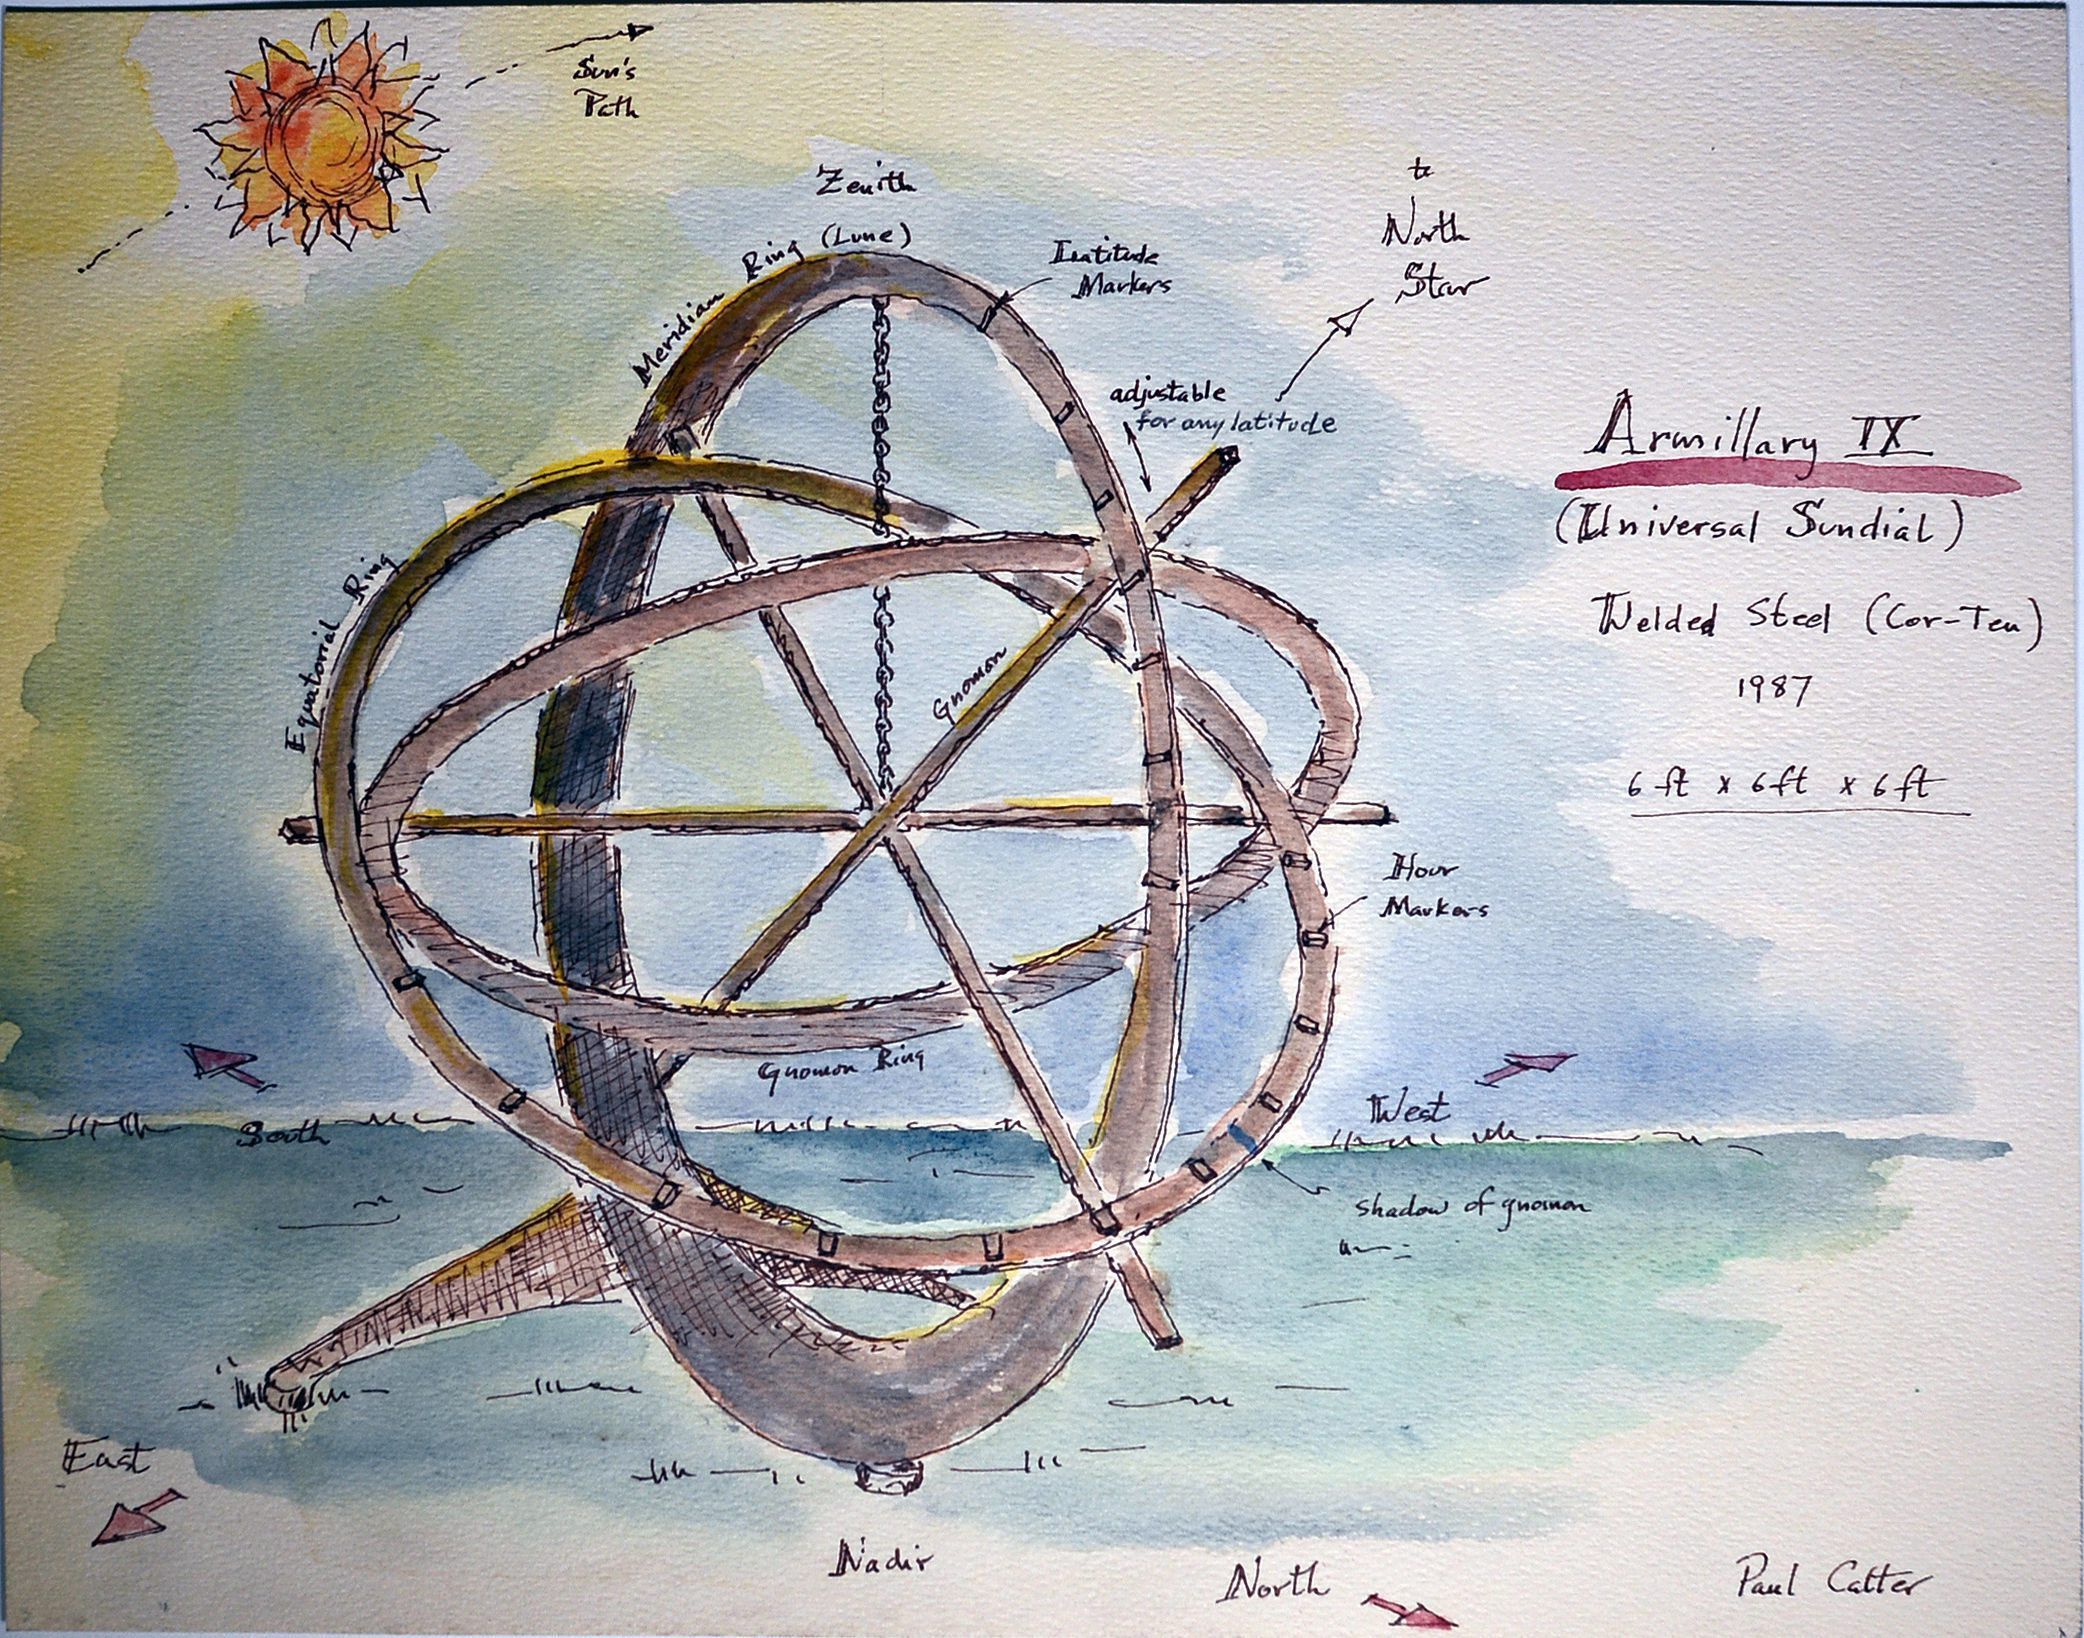 Sun's
Path
Zenith
(Lune)
Meridian Ring
Latitude
Markers
to
North
Star
adjustable
for any latitude
Armillary IX
(Universal Sundial)
Welded Steel (Cor-Ten)
1987
6 ft x 6 ft x 6 ft
Equatorial Ring
Gnomon
Hour
Markers
Gnomon Ring
South
West
shadow of gnomon
East
Nadir
North
Paul Calter